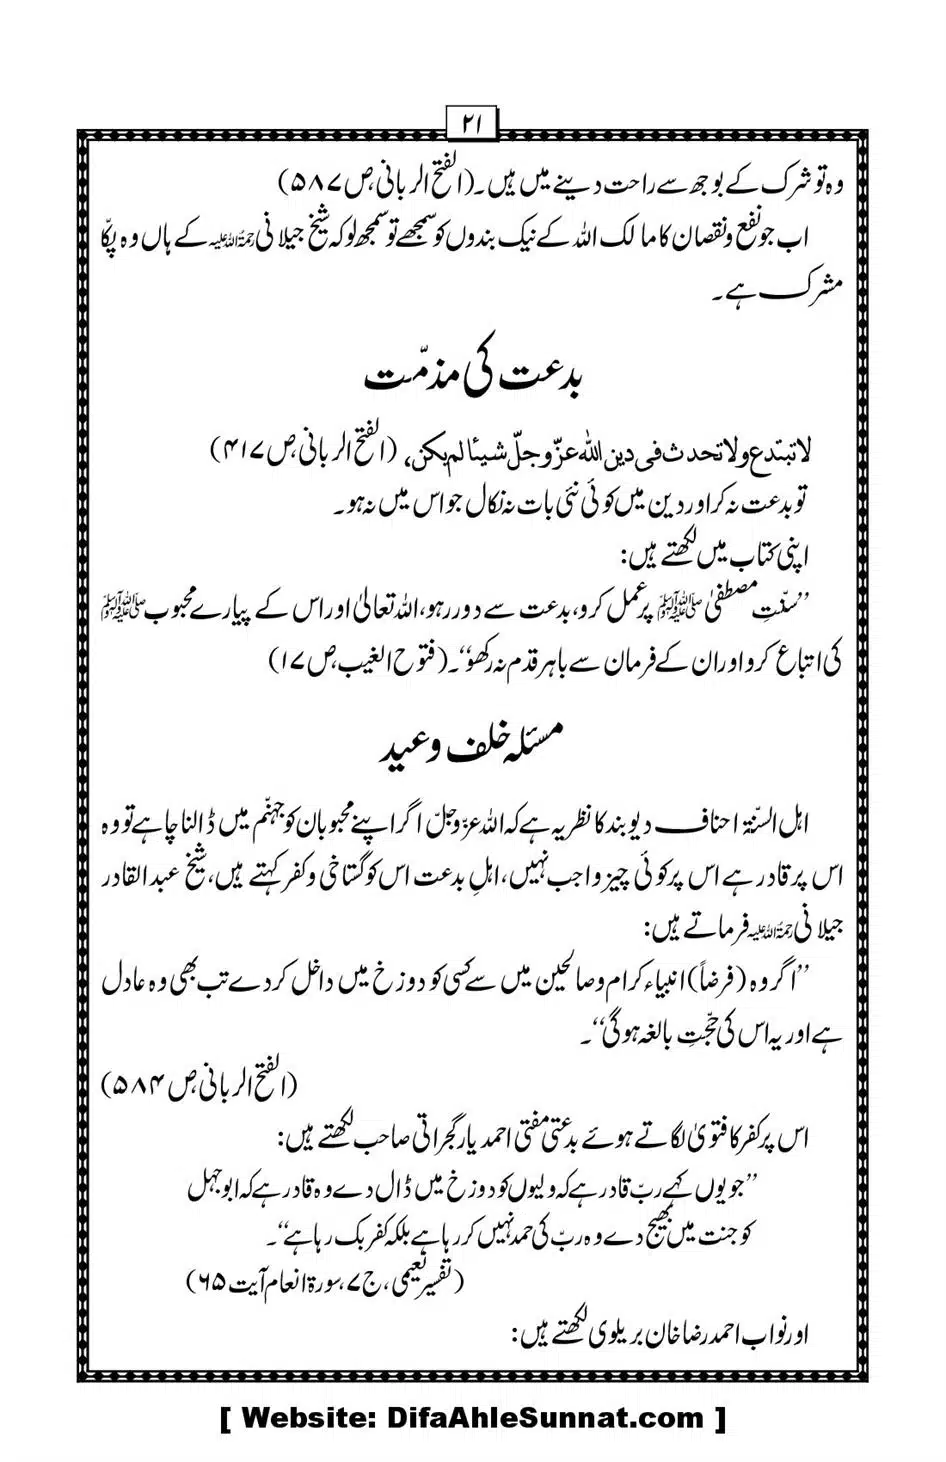 ۲۱
وہ تو شرک کے بوجھ سے راحت دینے میں ہیں۔ (الفتح الربانی ص ۵۸۷)
اب جو نفع و نقصان کا مالک اللہ کے نیک بندوں کو سمجھے تو سمجھ لو کہ شیخ جیلانی رحمۃ اللہ علیہ کے ہاں وہ پکّا
مشرک ہے۔
بدعت کی مذمّت
لا تبتدع ولا تحدث فی دین اللہ عزّ وجلّ شیئا لم یکن، (الفتح الربانی ص ۴۱۷)
تو بدعت نہ کر اور دین میں کوئی نئی بات نہ نکال جو اس میں نہ ہو۔
اپنی کتاب میں لکھتے ہیں:
’’سنّتِ مصطفیٰ ﷺ پر عمل کرو، بدعت سے دور رہو، اللہ تعالیٰ اور اس کے پیارے محبوب ﷺ
کی اتباع کرو اور ان کے فرمان سے باہر قدم نہ رکھو‘‘۔ (فتوح الغیب ص ۱۷)
مسئلہ خلف وعید
اہل السنّۃ احناف دیوبند کا نظریہ ہے کہ اللہ عزّوجلّ اگر اپنے محبوبان کو جہنّم میں ڈالنا چاہے تو وہ
اس پر قادر ہے اس پر کوئی چیز واجب نہیں، اہلِ بدعت اس کو گستاخی و کفر کہتے ہیں، شیخ عبد القادر
جیلانی رحمۃ اللہ علیہ فرماتے ہیں:
’’اگر وہ (فرضاً) انبیاء کرام و صالحین میں سے کسی کو دوزخ میں داخل کر دے تب بھی وہ عادل
ہے اور یہ اس کی حجّتِ بالغہ ہوگی‘‘۔
(الفتح الربانی ص ۵۸۴)
اس پر کفر کا فتویٰ لگاتے ہوئے بدعتی مفتی احمد یار گجراتی صاحب لکھتے ہیں:
’’جو یوں کہے ربّ قادر ہے کہ ولیوں کو دوزخ میں ڈال دے وہ قادر ہے کہ ابو جہل
کو جنت میں بھیج دے وہ ربّ کی حمد نہیں کر رہا ہے بلکہ کفر بک رہا ہے‘‘۔
(تفسیر نعیمی، ج ۷، سورۃ انعام آیت ۶۵)
اور نواب احمد رضا خان بریلوی لکھتے ہیں:
[ Website: DifaAhleSunnat.com ]